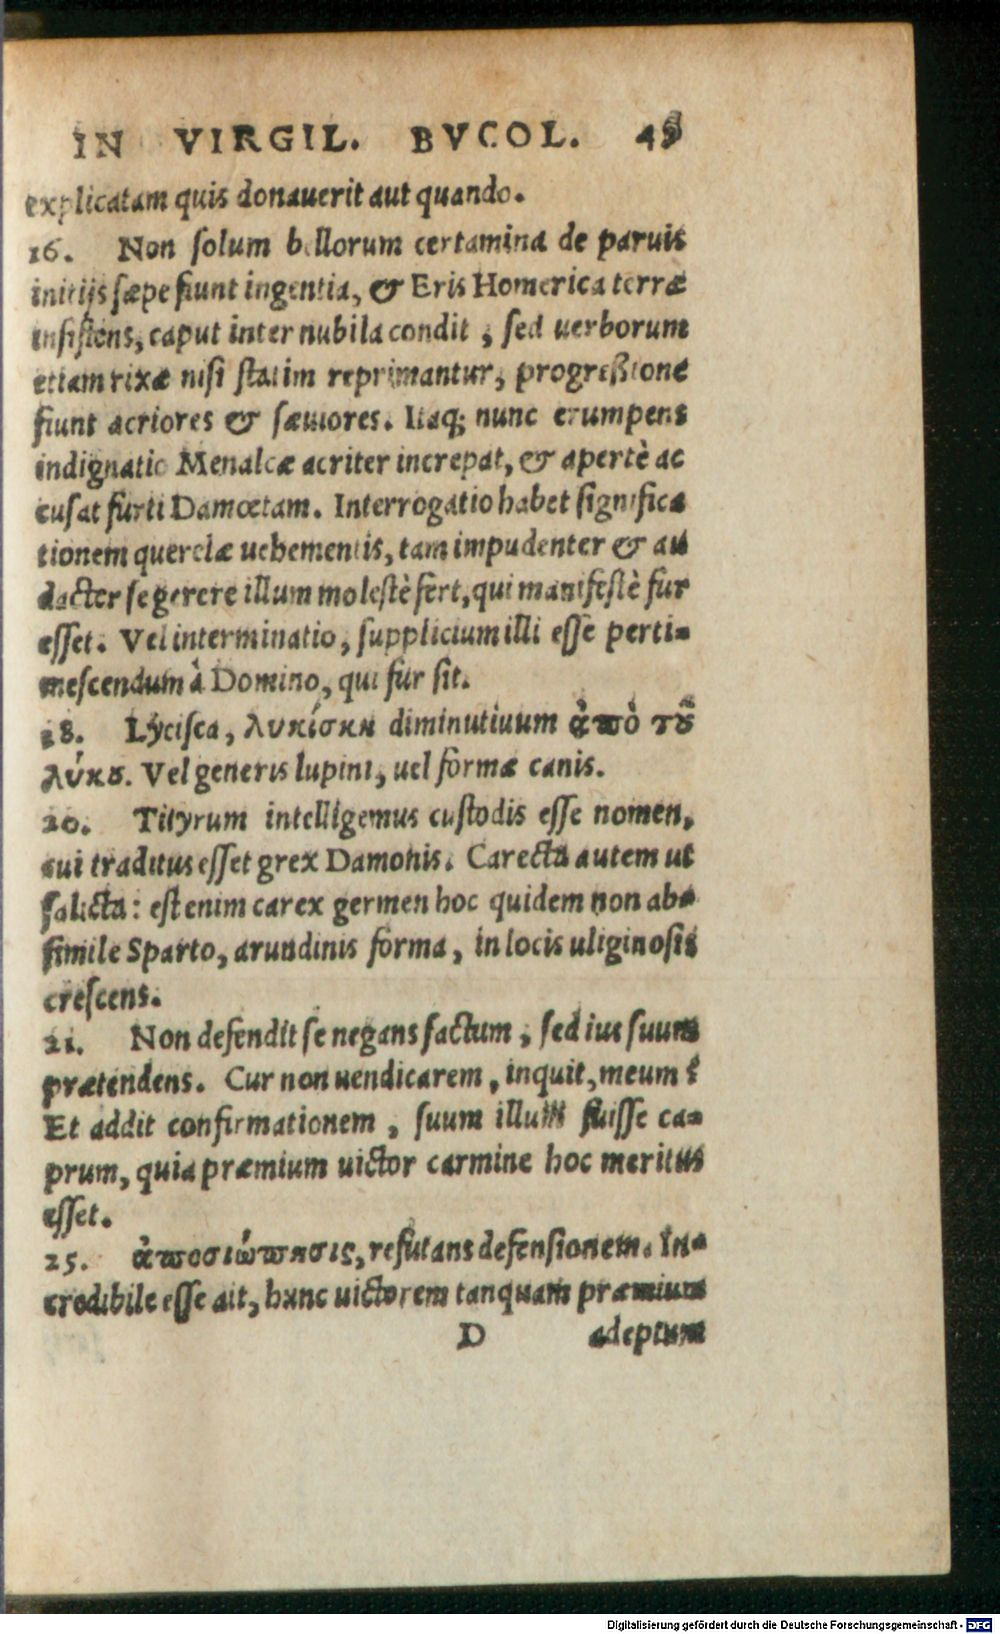 IN VIRGIL. BVCOL. 49
explicatam quis donauerit aut quando.
16. Non ſolum bellorum certamina de paruis
initijs ſæpe fiunt ingentia, & Eris Homerica terræ
inſiſtens, caput inter nubila condit, ſed uerborum
etiam rixæ niſi ſtatim reprimantur, progreßione
fiunt acriores & ſæuiores. Itaq; nunc erumpens
indignatio Menalcæ acriter increpat, & apertè ac
cuſat furti Damœtam. Interrogatio habet ſignifica
tionem querelæ uehementis, tam impudenter & au
dacter ſe gerere illum moleſtè fert, qui manifeſtè fur
eſſet. Vel interminatio, ſupplicium illi eſſe perti-
meſcendum à Domino, qui fur ſit.
18. Lyciſca, λυκίσκη diminutiuum ἀπὸ τοῦ
λύκου. Vel generis lupini, uel formæ canis.
20. Tityrum intelligemus cuſtodis eſſe nomen,
cui traditus eſſet grex Damonis. Carecta autem ut
ſalicta: eſt enim carex germen hoc quidem non abs
ſimile Sparto, arundinis forma, in locis uliginoſis
creſcens.
21. Non defendit ſe negans factum, ſed ius ſuum
prætendens. Cur non uendicarem, inquit, meum?
Et addit confirmationem, ſuum illum fuiſſe ca-
prum, quia præmium uictor carmine hoc meritus
eſſet.
25. ἀποσιώπησις, refutans defenſionem. In-
credibile eſſe ait, hunc uictorem tanquam præmium
D adeptum
Digitalisierung gefördert durch die Deutsche Forschungsgemeinschaft - DFG